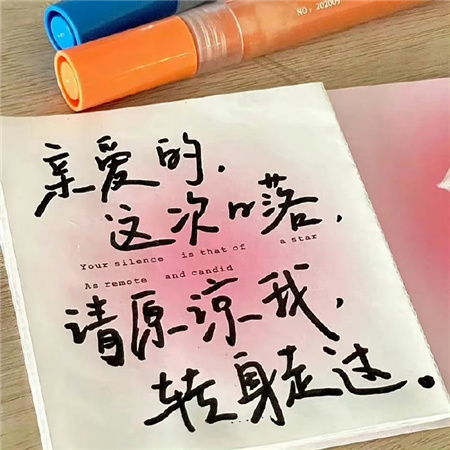 NO: 202009
亲爱的,
这次日落,
Your silence is that of a star
As remote and candid
请原谅我,
转身走过。